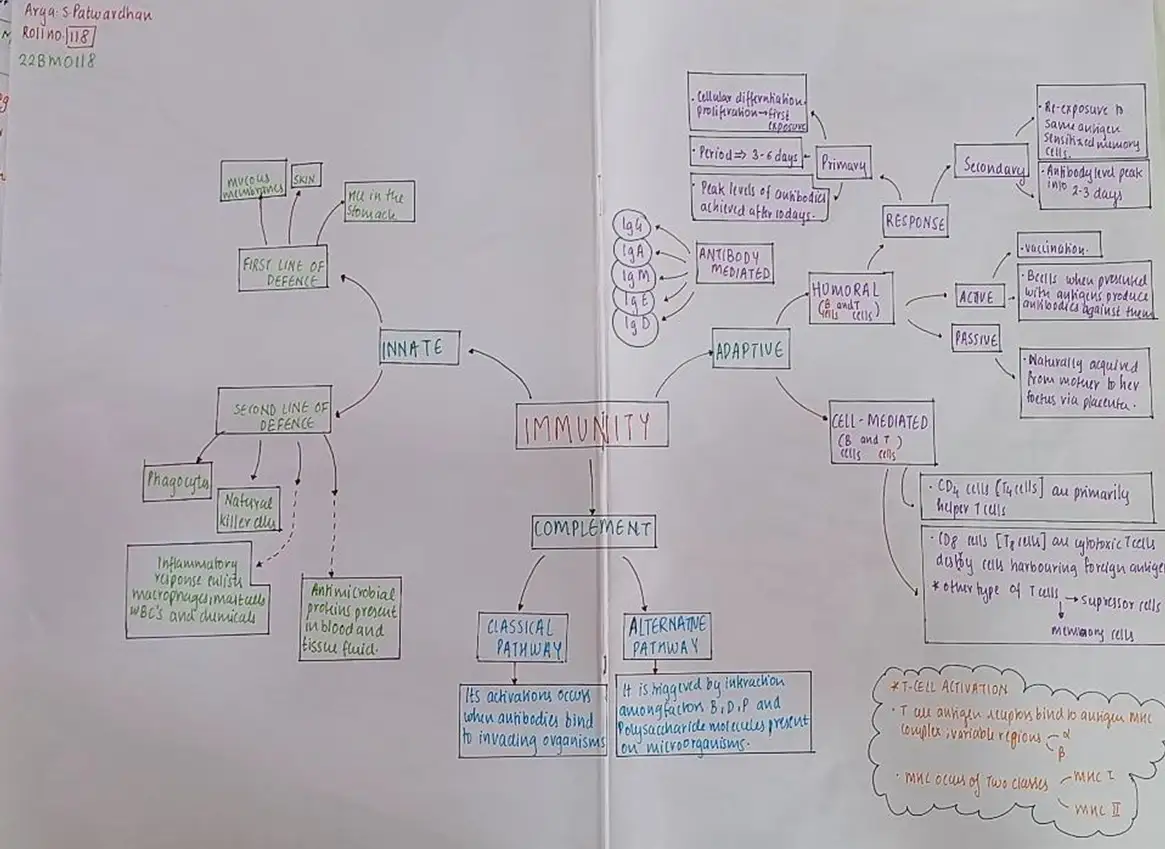 Arya. S. Patwardhan
Roll no. 118
22BM0118
mucous
membranes
SKIN
HCl in the
stomach
FIRST LINE OF
DEFENCE
INNATE
SECOND LINE OF
DEFENCE
Phagocytes
Natural
killer cells
Inflammatory
response enlists
macrophages, mast cells
WBC's and chemicals
Antimicrobial
proteins present
in blood and
tissue fluid.
IMMUNITY
COMPLEMENT
CLASSICAL
PATHWAY
Its activations occurs
when antibodies bind
to invading organisms
ALTERNATIVE
PATHWAY
It is triggered by interaction
among factors B, D, P and
Polysaccharide molecules present
on microorganisms.
ADAPTIVE
HUMORAL
(B and T)
cells cells
ANTIBODY
MEDIATED
IgG
IgA
IgM
IgE
IgD
RESPONSE
Primary
• Cellular differntiation,
proliferation → first
exposure
• Period ⇒ 3-6 days
• Peak levels of antibodies
achieved after 10 days.
Secondary
• Re-exposure to
same antigen
sensitized memory
cells.
• Antibody level peak
in 2-3 days
ACTIVE
• vaccination.
• B cells when presented
with antigens produce
antibodies against them
PASSIVE
• Naturally acquired
from mother to her
foetus via placenta.
CELL-MEDIATED
(B and T)
cells cells
• CD4 cells [T4 cells] are primarily
helper T cells
• CD8 cells [T8 cells] are cytotoxic T cells
destroy cells harbouring foreign antigen
* other type of T cells → supressor cells
↓
memory cells
* T-CELL ACTIVATION
• T cell antigen receptors bind to antigen MHC
complex, variable regions α
β
• MHC occurs of two classes MHC I
MHC II